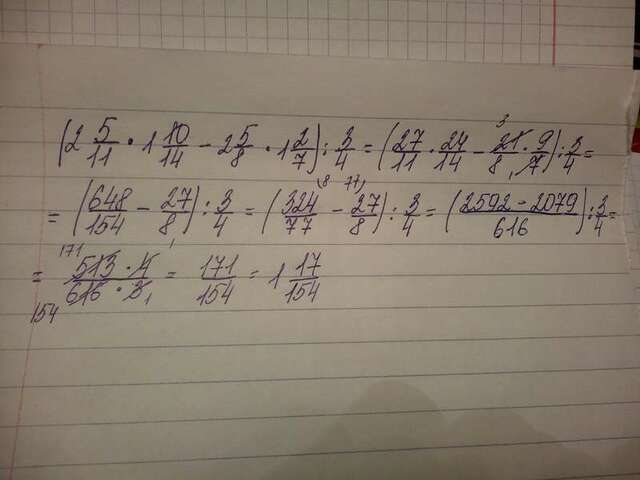 (2 5/11 • 1 10/14 - 2 5/8 • 1 2/7) : 3/4 = (27/11 • 24/14 - 21 • 9/8 • 7) : 3/4 =
= (648/154 - 27/8) : 3/4 = (324/77 - 27/8) : 3/4 = (2592 - 2079/616) : 3/4 =
= 513 • 4/616 • 3 = 171/154 = 1 17/154